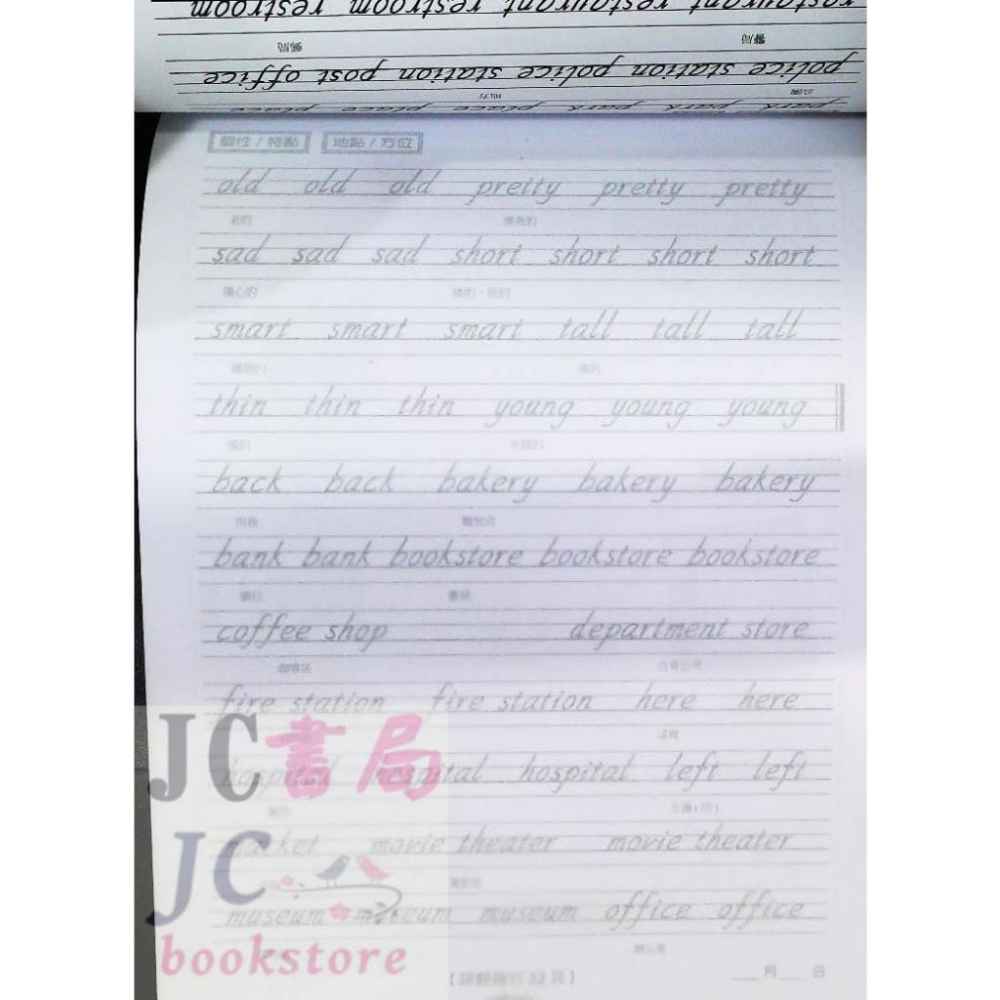 restaurant restaurant restroom restroom
警局 郵局
police station police station post office
公園 地方
park park park place place place
個性/特點 地點/方位
old old old pretty pretty pretty
老的 漂亮的
sad sad sad short short short short
傷心的 矮的、短的
smart smart smart tall tall tall
聰明的 高的
thin thin thin young young young
瘦的 年輕的
back back bakery bakery bakery
麵包店
bank bank bookstore bookstore bookstore
銀行 書店
coffee shop department store
咖啡店 百貨公司
fire station fire station here here
這裡
hospital hospital hospital left left
左邊(的)
market movie theater movie theater
電影院
museum museum museum office office
辦公室
32頁)
月 日
JC書局
JC
bookstore